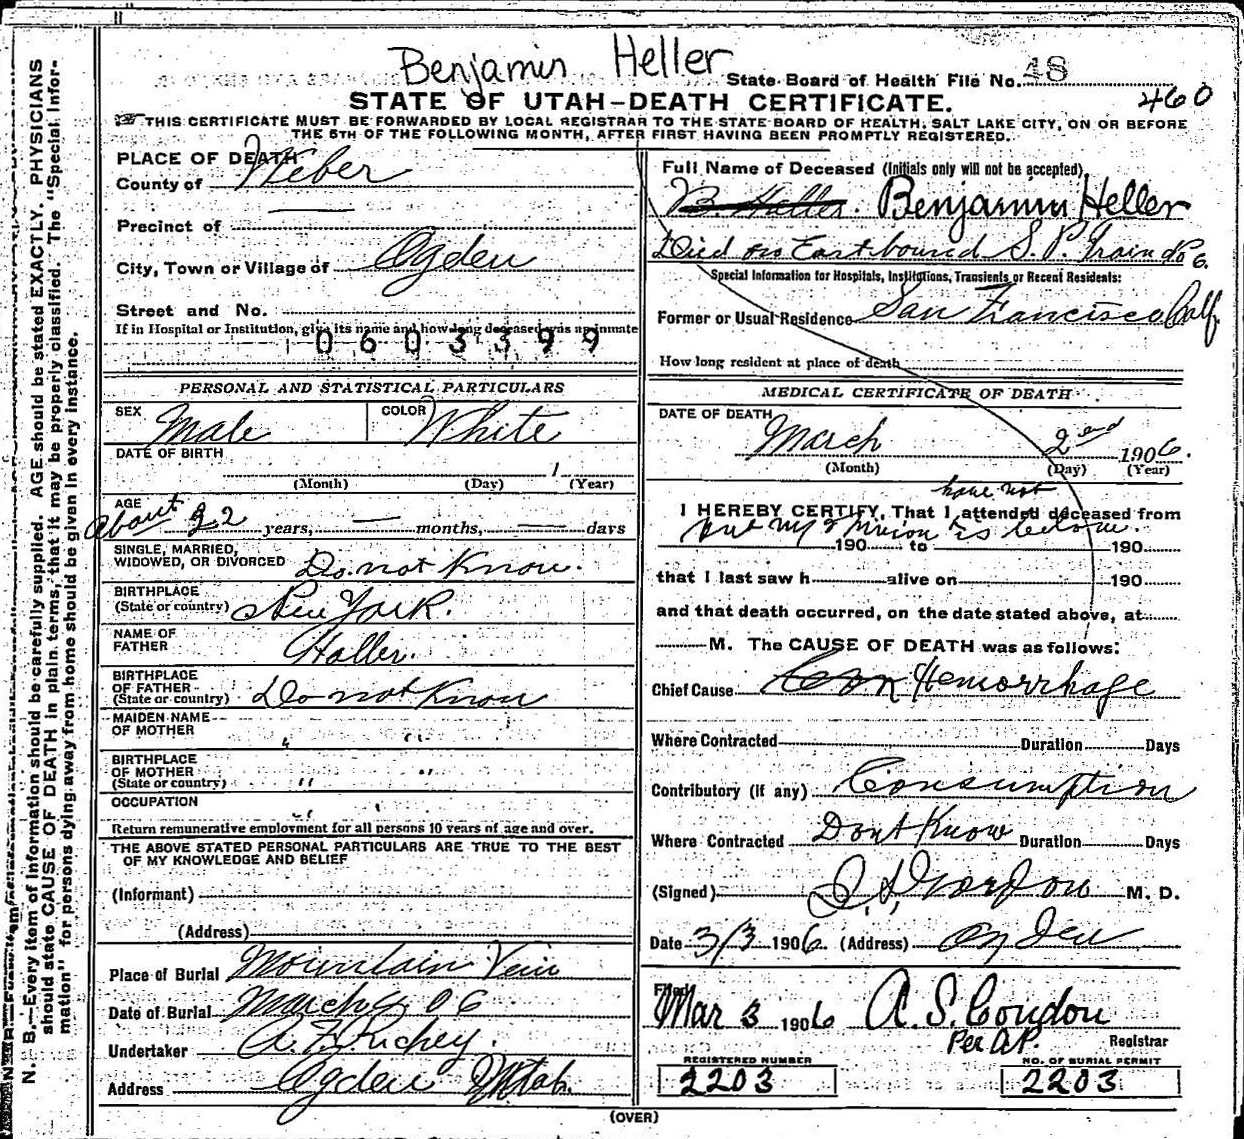 Benjamin Heller
State Board of Health File No. 48
460
STATE OF UTAH-DEATH CERTIFICATE.
THIS CERTIFICATE MUST BE FORWARDED BY LOCAL REGISTRAR TO THE STATE BOARD OF HEALTH, SALT LAKE CITY, ON OR BEFORE
THE 5TH OF THE FOLLOWING MONTH, AFTER FIRST HAVING BEEN PROMPTLY REGISTERED.
N. B.—Every item of information should be carefully supplied. AGE should be stated EXACTLY. PHYSICIANS
should state CAUSE OF DEATH in plain terms, that it may be properly classified. The "Special Infor-
mation" for persons dying away from home should be given in every instance.
PLACE OF DEATH
County of Weber
Precinct of
City, Town or Village of Ogden
Street and No.
If in Hospital or Institution, give its name and how long deceased was an inmate
0603399
PERSONAL AND STATISTICAL PARTICULARS
SEX Male COLOR White
DATE OF BIRTH
1
(Month) (Day) (Year)
AGE
About 32 years, — months, — days
SINGLE, MARRIED,
WIDOWED, OR DIVORCED Do not Know.
BIRTHPLACE
(State or country) New York.
NAME OF
FATHER Heller.
BIRTHPLACE
OF FATHER
(State or country) Do not Know
MAIDEN NAME
OF MOTHER " "
BIRTHPLACE
OF MOTHER
(State or country) " "
OCCUPATION " "
Return remunerative employment for all persons 10 years of age and over.
THE ABOVE STATED PERSONAL PARTICULARS ARE TRUE TO THE BEST
OF MY KNOWLEDGE AND BELIEF
(Informant)
(Address)
Place of Burial Mountain View
Date of Burial March 06
Undertaker A. F. Richey.
Address Ogden Utah.
Full Name of Deceased (Initials only will not be accepted)
B. Heller. Benjamin Heller
Died on East bound S. P. Train No 6.
Special Information for Hospitals, Institutions, Transients or Recent Residents:
Former or Usual Residence San Francisco Calf
How long resident at place of death
MEDICAL CERTIFICATE OF DEATH
DATE OF DEATH
March 2nd 1906.
(Month) (Day) (Year)
have not
I HEREBY CERTIFY, That I attended deceased from
but my opinion is below.
190 to 190
that I last saw h alive on 190
and that death occurred, on the date stated above, at
M. The CAUSE OF DEATH was as follows:
Chief Cause Con Hemorrhage
Where Contracted Duration Days
Contributory (if any) Consumption
Where Contracted Dont Know Duration Days
(Signed) Gordon M. D.
Date 3/3 1906 (Address) Ogden
Filed
Mar 3 1906 A. S. Condon
Per A.P. Registrar
REGISTERED NUMBER
2203
NO. OF BURIAL PERMIT
2203
(OVER)